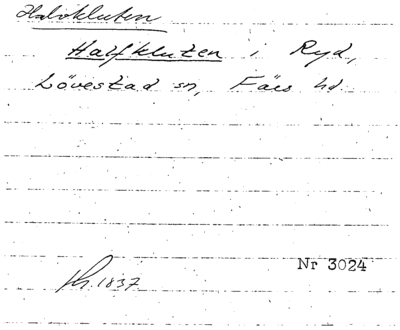 Halvkluten
Halfkluten i Ryd,
Lövestad sn, Färs hd.
Nr 3024
1837